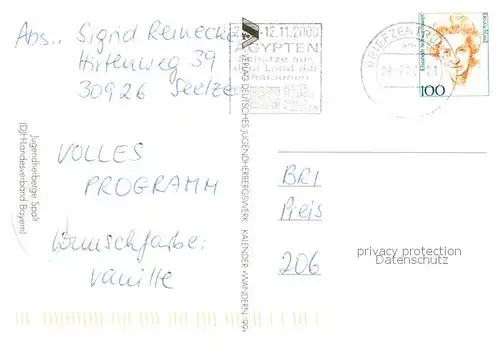 Abs.. Sigrid Reinecke
Hirtenweg 39
30926 Seelze
-12.11.2000
ÄGYPTEN
Schätze aus
dem Land der
Pharaonen
BRIEFZENTRUM
100
VOLLES
PROGRAMM
Wunschfarbe:
Vanille
Jugendherberge Spalt
(DJH-Landesverband Bayern)
VERLAG DEUTSCHES JUGENDHERBERGSWERK KALENDER »WANDERN '99«
BRI
Preis
206
privacy protection
Datenschutz